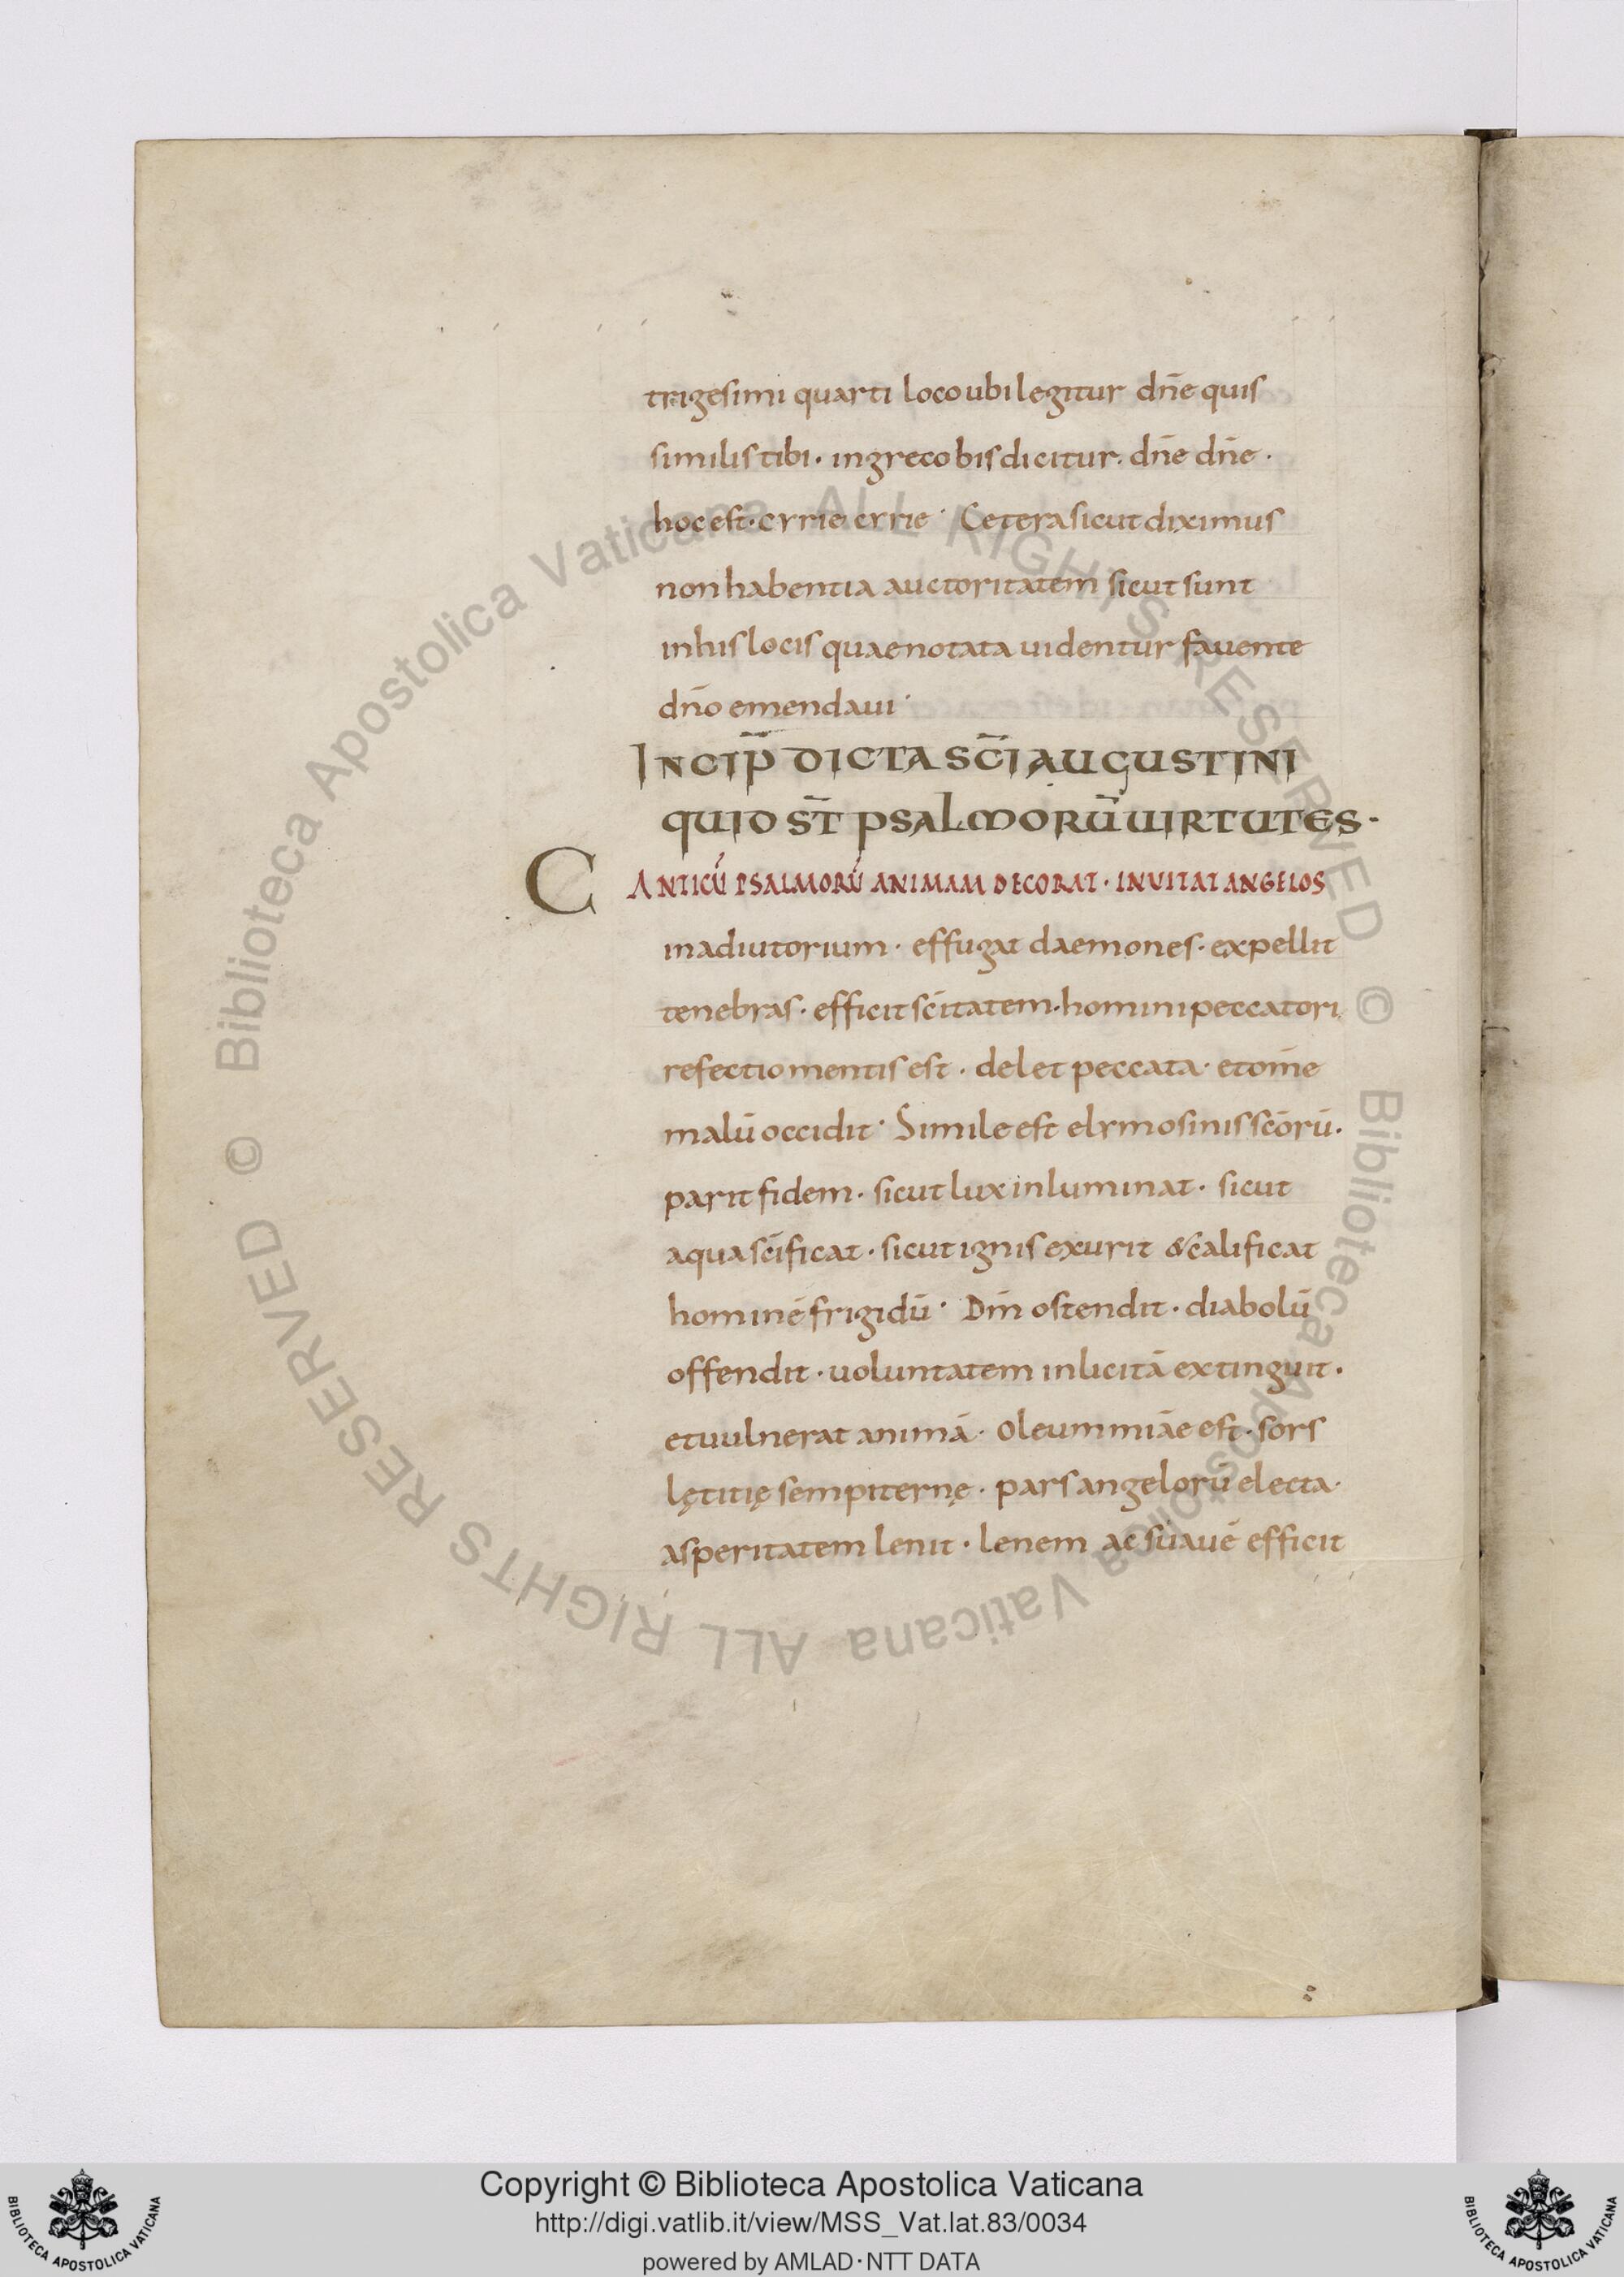 trigesimi quarti loco ubi legitur dn̄e quis
similis tibi · in greco bis dicitur. dn̄e dn̄e ·
hoc est · cyrie cyrie · Cetera sicut diximus
non habentia auctoritatem sicut sunt
in his locis quae notata uidentur fauente
dn̄o emendaui ·
INCIP̄ DICTA SC̄I AUGUSTINI
QUID ST̄ PSALMORŪ UIRTUTES ·
CANTICŪ PSALMORŪ ANIMAM DECORAT · INVITAT ANGELOS
in adiutorium · effugat daemones · expellit
tenebras · efficit sc̄itatem · homini peccatori
refectio mentis est · delet peccata · et om̄e
malū occidit · Simile est elymosinis sc̄orū ·
parit fidem · sicut lux inluminat · sicut
aqua sc̄ificat · sicut ignis exurit & calificat
hominē frigidū · Dm̄ ostendit · diabolū
offendit · uoluntatem inlicitā extinguit ·
et uulnerat animā · Oleum miāe est · sors
lętitię sempiternę · pars angelorū electa ·
asperitatem lenit · lenem ac suauē efficit
© Biblioteca Apostolica Vaticana ALL RIGHTS RESERVED
© Biblioteca Apostolica Vaticana ALL RIGHTS RESERVED
Copyright © Biblioteca Apostolica Vaticana
http://digi.vatlib.it/view/MSS_Vat.lat.83/0034
powered by AMLAD·NTT DATA
BIBLIOTECA APOSTOLICA VATICANA
BIBLIOTECA APOSTOLICA VATICANA